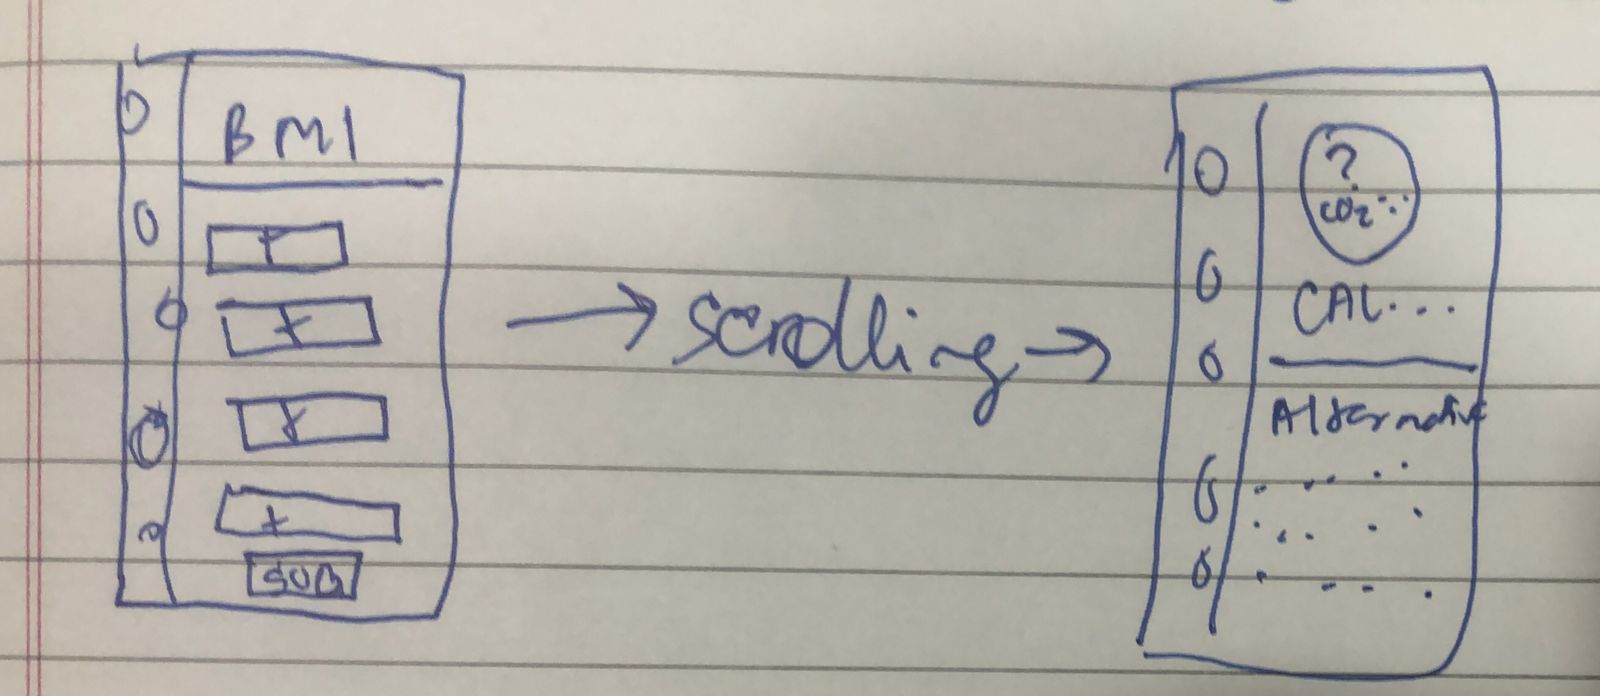 BMI
SUB
→ scrolling →
?
CO2...
CAL...
Alternative